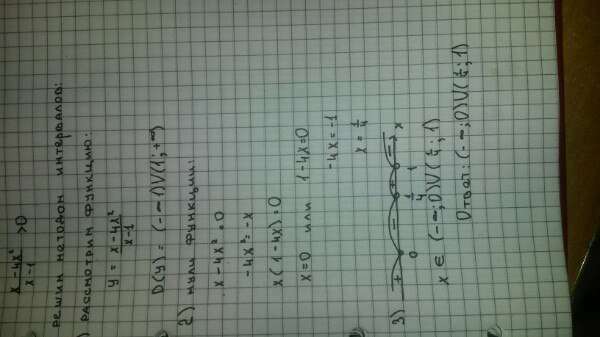 x-4x²/x-1 >0
решим методом интервалов:
) рассмотрим функцию:
y = x-4x²/x-1
D(y) = (-∞ 1)U(1;+∞)
2) нули функции:
x-4x²=0
-4x²=-x
x(1-4x)=0
x=0 или 1-4x=0
-4x=-1
x=1/4
3) + - + - x
0 1/4 1
x ∈ (-∞;0)U(1/4;1)
Ответ:(-∞;0)U(1/4;1)